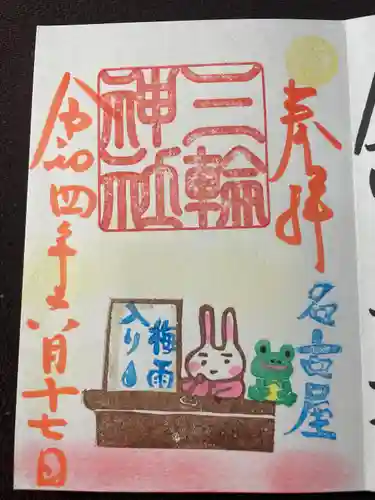 奉拝
三輪
神社
名古屋
梅雨
入り
令和四年五月十七日